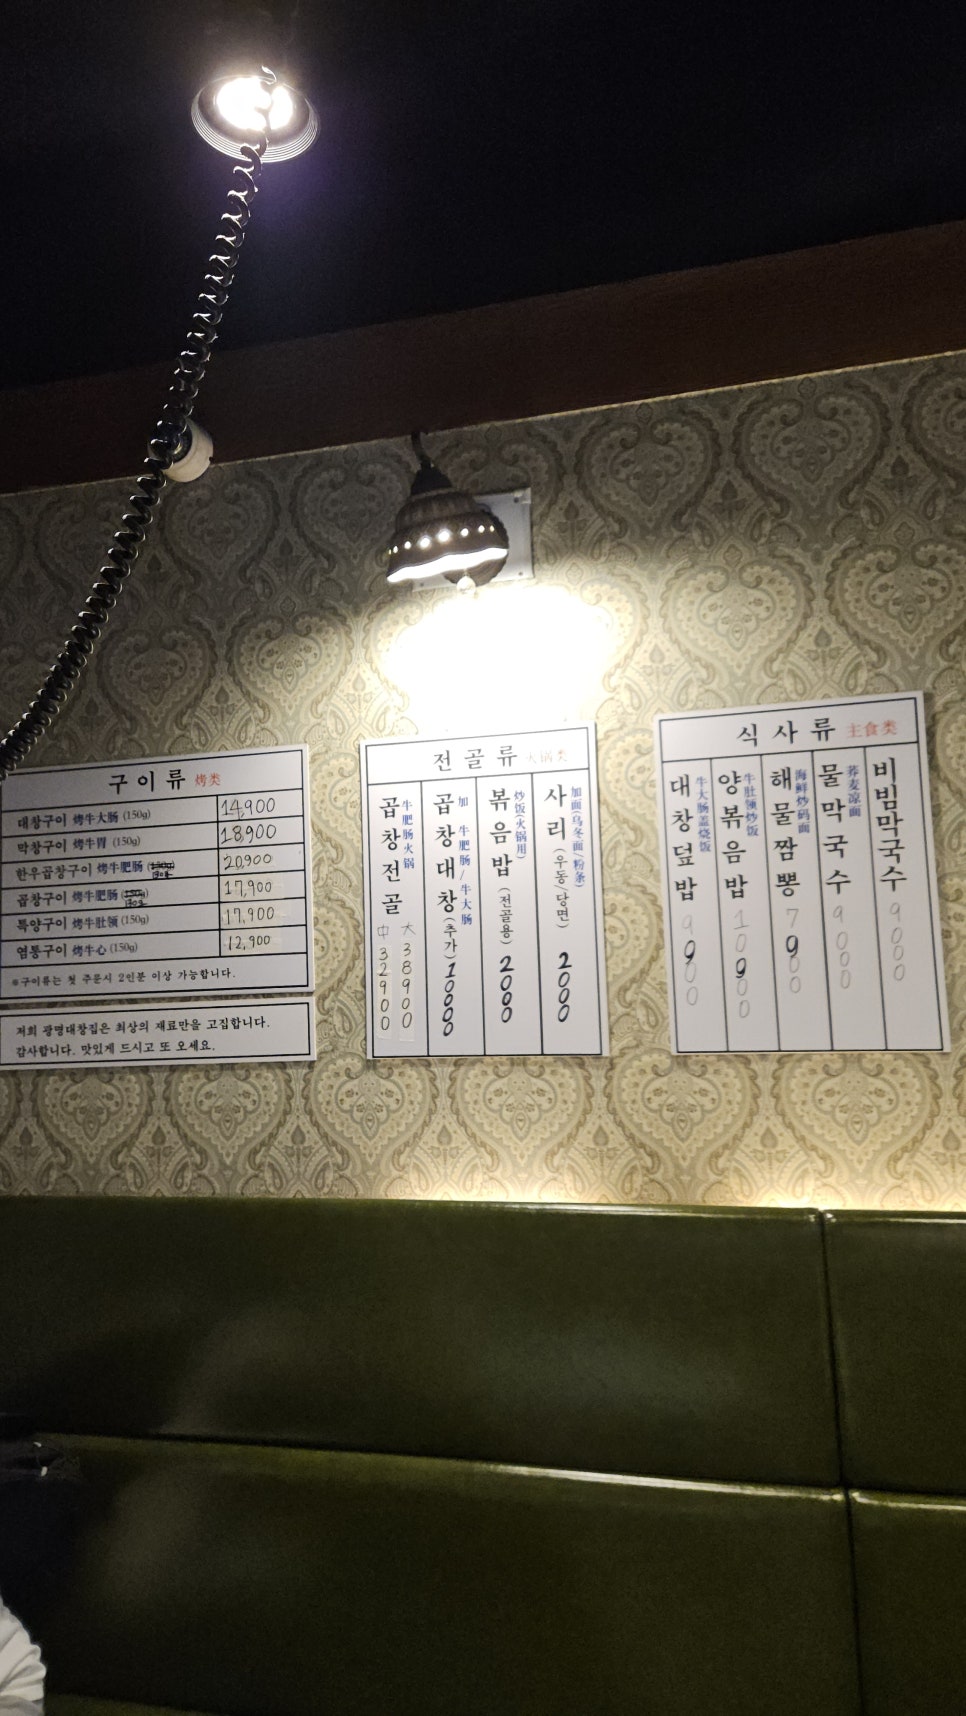 구이류 烤类
대창구이 烤牛大肠 (150g) 14,900
막창구이 烤牛胃 (150g) 18,900
한우곱창구이 烤牛肥肠 20,900
곱창구이 烤牛肥肠 17,900
특양구이 烤牛肚领 (150g) 17,900
염통구이 烤牛心 (150g) 12,900
※구이류는 첫 주문시 2인분 이상 가능합니다.
저희 광명대창집은 최상의 재료만을 고집합니다.
감사합니다. 맛있게 드시고 또 오세요.
전골류 火锅类
곱창전골 牛肥肠火锅 中 32900 大 38900
곱창대창(추가) 加 牛肥肠/牛大肠 10000
볶음밥(전골용) 炒饭(火锅用) 2000
사리(우동/당면) 加面(乌冬面/粉条) 2000
식사류 主食类
대창덮밥 牛大肠盖烧饭
양볶음밥 牛肚领炒饭
해물짬뽕 海鲜炒码面
물막국수 荞麦凉面 9000
비빔막국수 9000